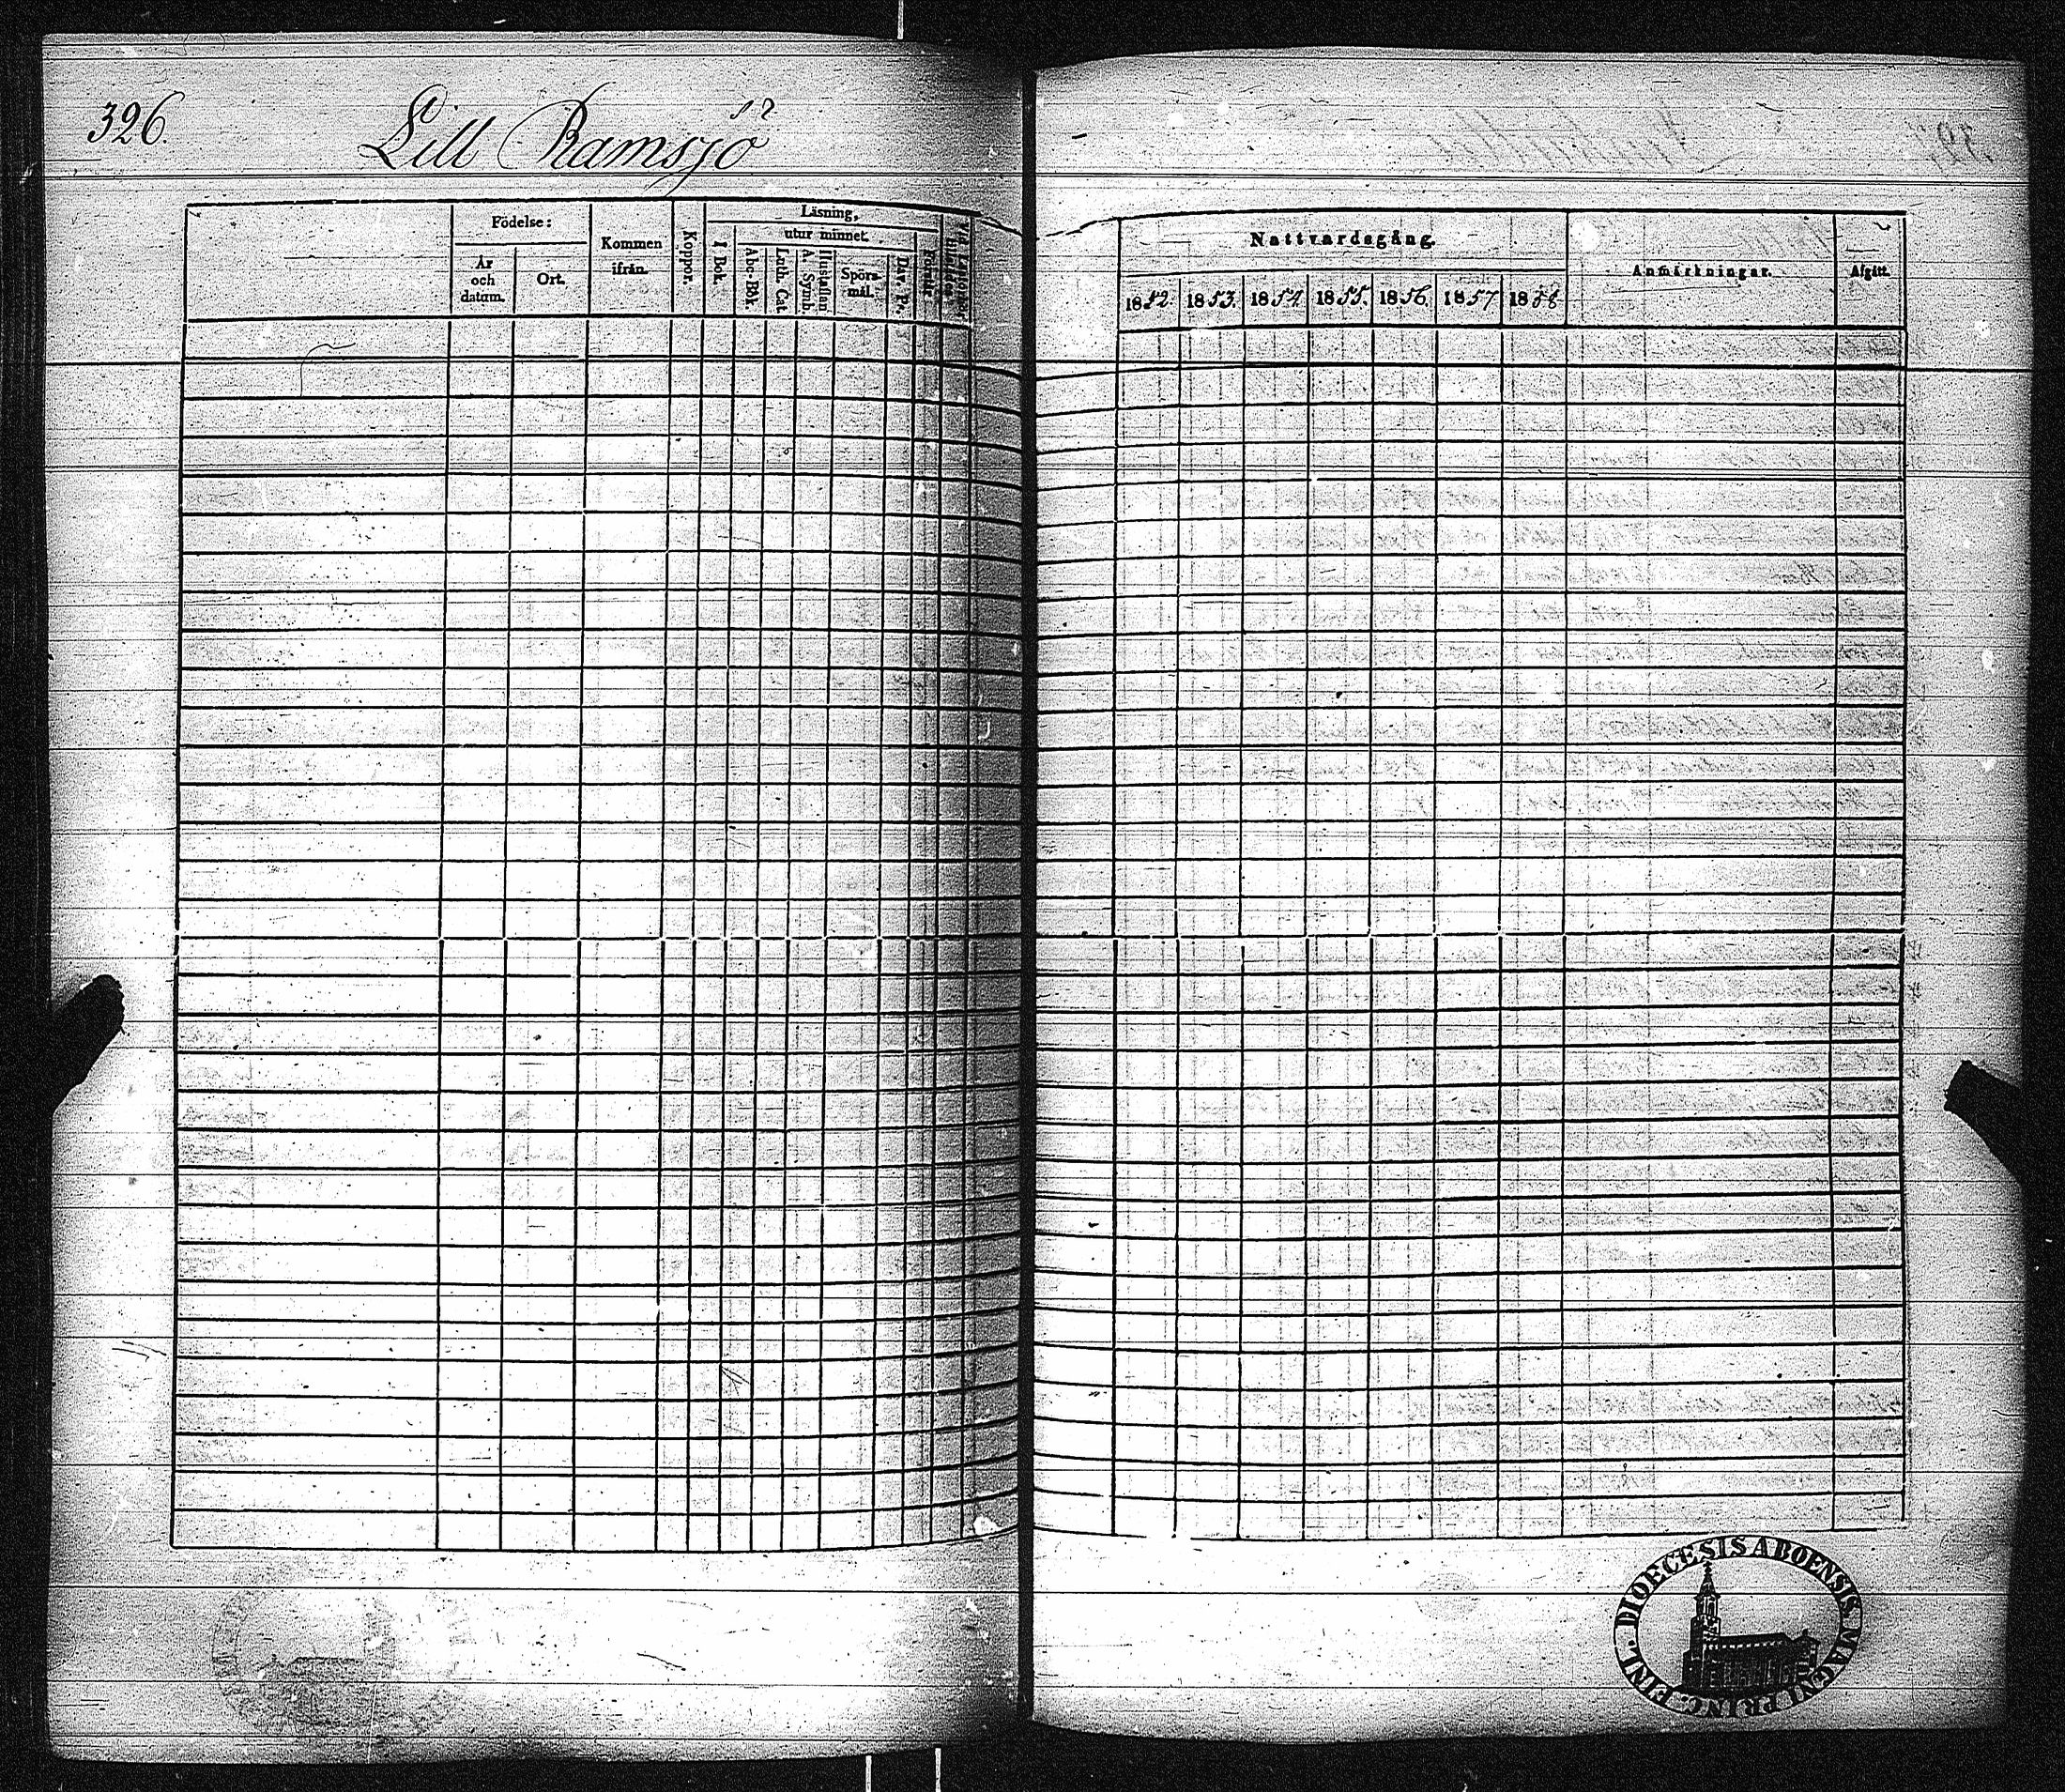 326.
Lill Ramsjö
Födelse:
År
och
datum.
Ort.
Kommen
ifrån.
Koppor.
Läsning,
I Bok.
utur minnet.
Abc-Bok.
Luth. Cat.
Hustaflan
A. Symb.
Spörs-
mål.
Dav. P.
Förstår
Nattvardsgång.
1852
1853.
1854
1855.
1856.
1857
1858
Anmärkningar.
Afgått.
DIOECESIS ABOENSIS. MAGNI PRINC. FINL.